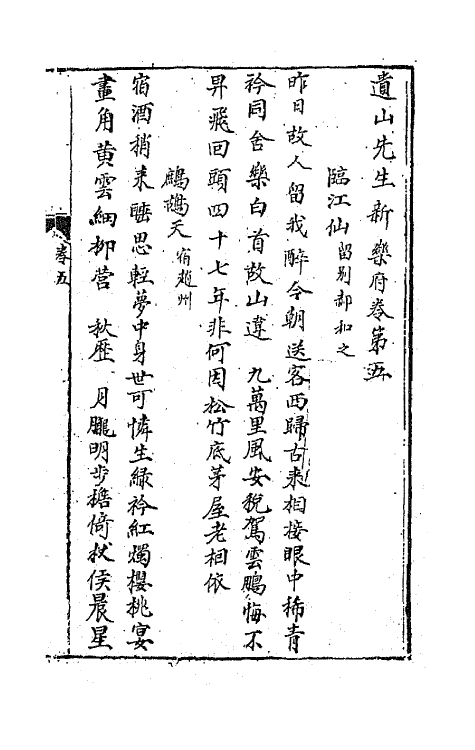 遺山先生新樂府卷第五
臨江仙 留别郝和之
昨日故人留我醉今朝送客西歸古来相接眼中稀青
衿同舍樂白首故山違 九萬里風安稅駕雲鵬悔不
昇飛回頭四十七年非何因松竹底茅屋老相依
鷓鴣天 宿趙州
宿酒稍来醒思輕夢中身世可憐生緑衿紅燭櫻桃宴
畫角黄雲細柳营 秋歷 月朧明步檐倚杖侯晨星
卷五